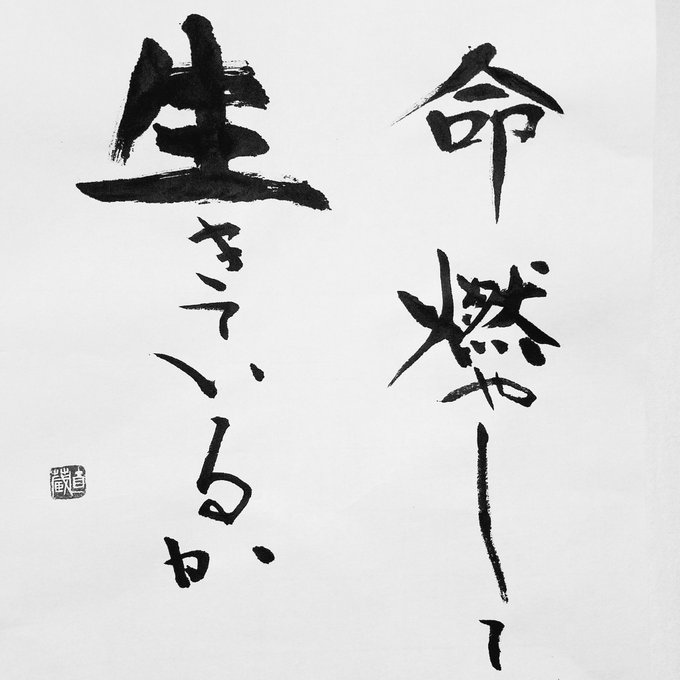 命燃やして
生きているか